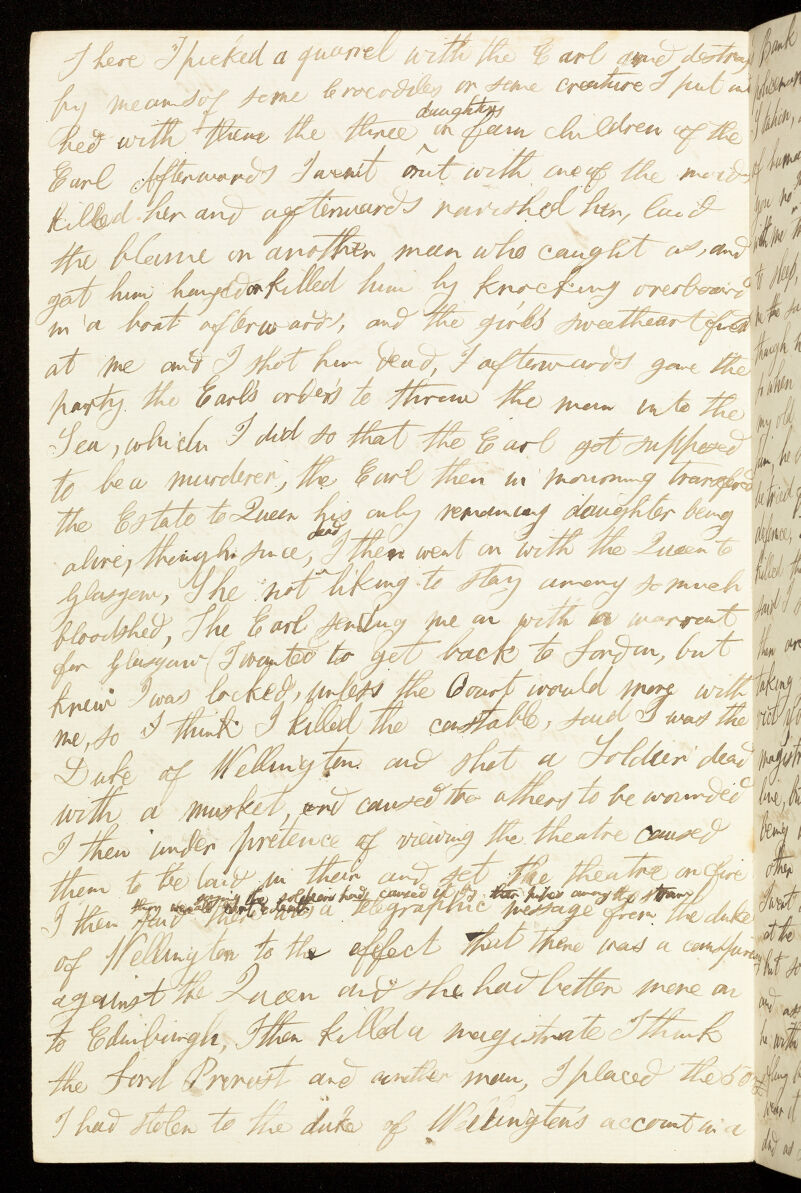 There I picked a quarrel with the Earl and destroy
by means of some Crocodiles or some creature I put in
daughters
bed with them the three or four children of the
Earl Afterwards I went out with one of the maids
killed her and afterwards ravished her, laid
the blame on another man who caught us, and
got him hanged or killed him by knocking overboard
in a boat afterwards, and the girl's sweetheart fired
at me and I shot him dead, I afterwards gave the
party the Earl's orders to throw the man into the
Sea, which I did so that the Earl got supposed
to be a murderer, the Earl then in mourning transferred
the Estate to Queen his only remaining daughter being
dead
alive, though since, I then went on with the Queen to
Glasgow, She not liking to stay among so much
bloodshed, The Earl sending me on with a warrant
for Glasgow (I wanted to get back to London, but
knew I was locked, unless the Court would move with
me, so I think I killed the constable, said I was the
Duke of Wellington and shot a Soldier dead
with a musket, and caused two others to be wounded
I then under pretence of viewing the theatre caused
them to be laid in their and set the theatre on fire
saying the soldiers had caused it by their pipes among the straw
I then said there was a telegraphic message from the duke
of Wellington to the effect that there was a conspiracy
against the Queen and she had better move on
to Edinburgh, I then killed a magistrate I think
the Lord Provost and another man, I placed the
I had stolen to the duke of Wellington's account in a